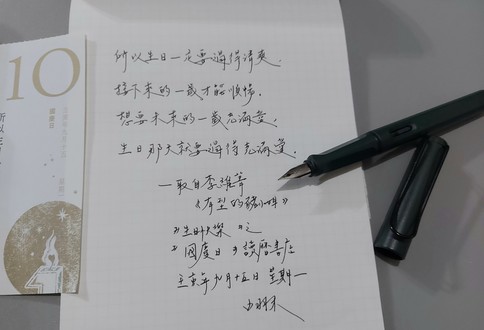 10
國慶日
所以生日一定要過得清爽,
接下來的一歲才能
想要未來的一歲充滿愛,
生日那天就要過得充滿愛.
—取自李維菁
《有型的豬小姐》
生日快樂 之
國慶日 讀曆書店
壬寅年九月十五日 星期一